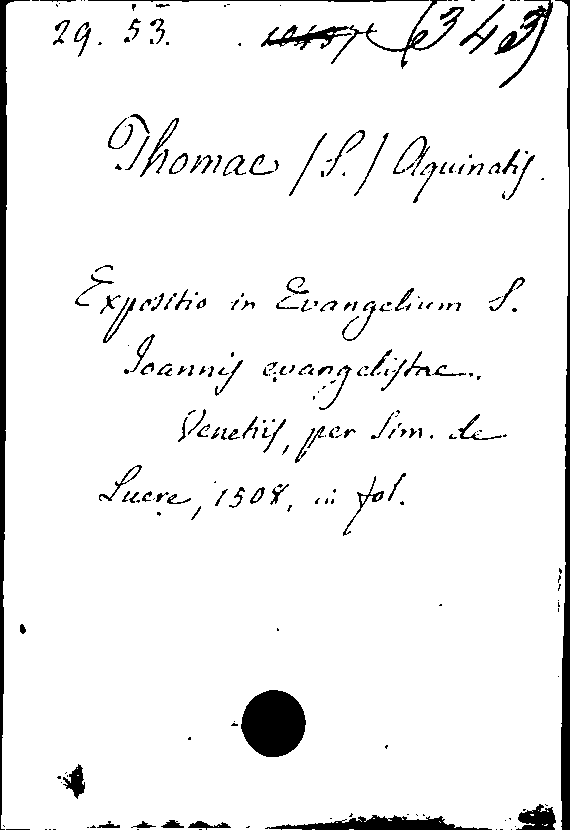 29. 53. (343)
Thomae /S./ Aquinatis.
Expositio in Evangelium S.
Ioannis evangelistae.
Venetiis, per Sim. de
Luere, 1508, in fol.